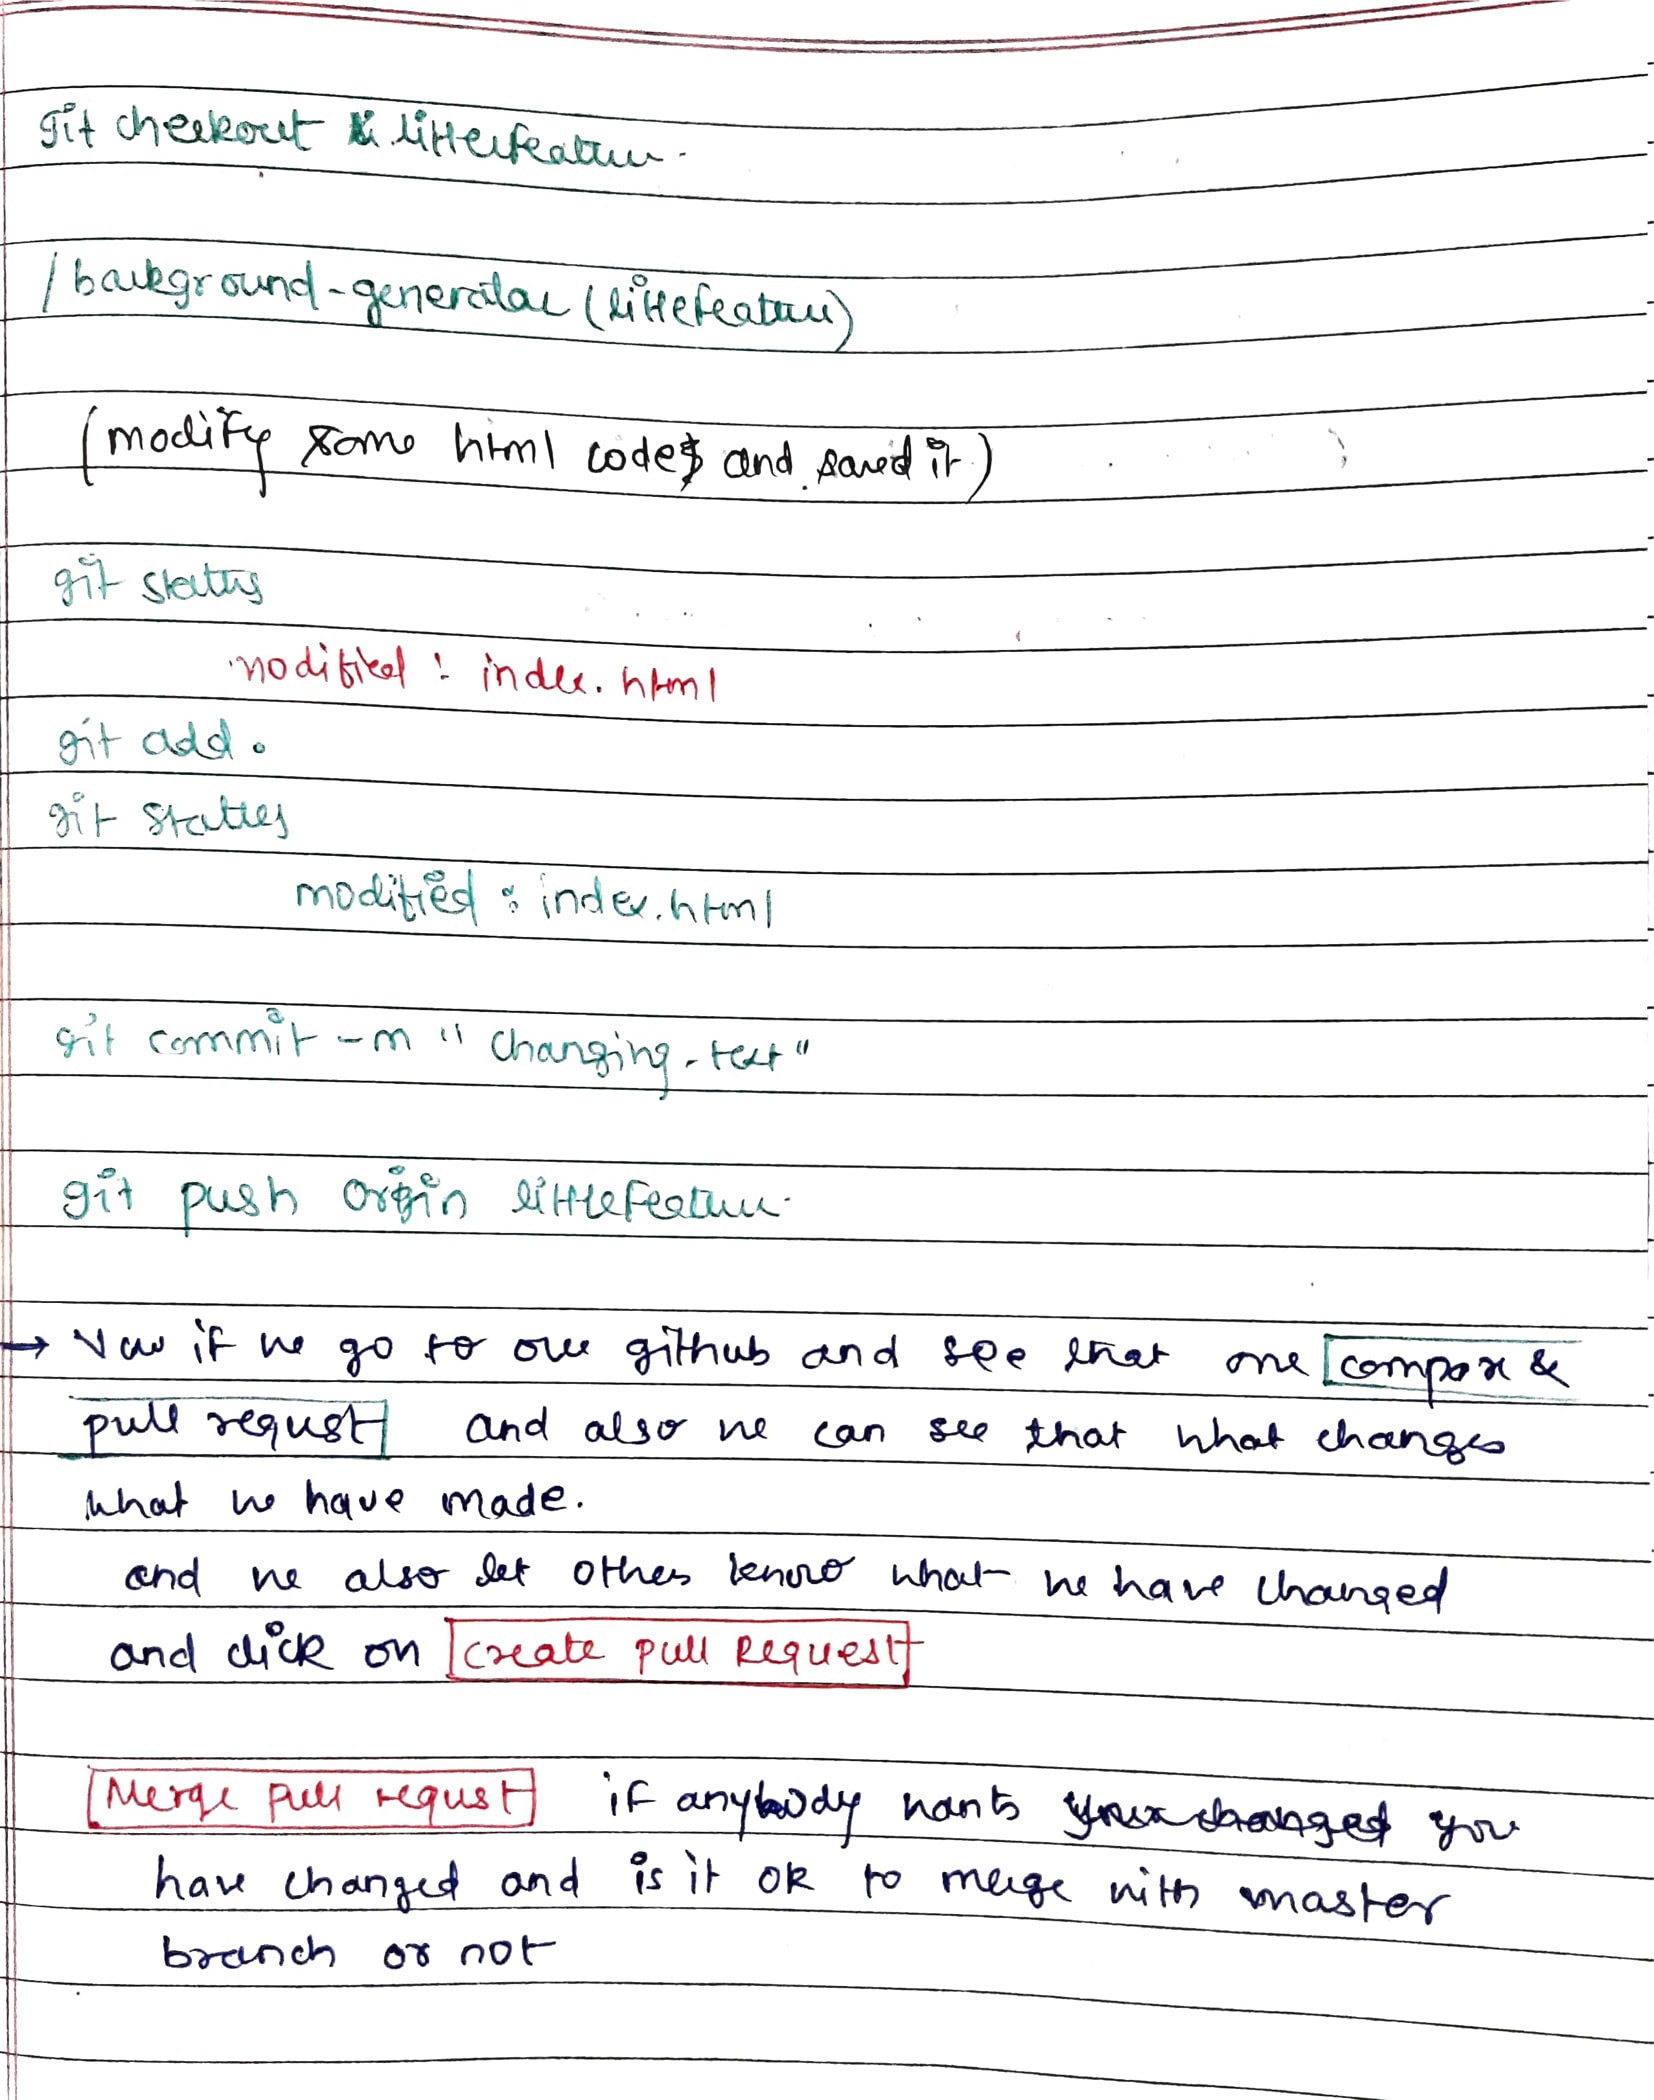 git checkout littlefeature.
/background-generator (littlefeature)
(modify some html code and saved it)
git status
modified : index.html
git add .
git status
modified : index.html
git commit -m "changing-text"
git push origin littlefeature.
→ Now if we go to our github and see that one compare &
pull requst and also we can see that what changes
what we have made.
and we also let others know what we have changed
and click on create pull Request
Merge pull requst if anybody wants you
have changed and is it ok to merge with master
branch or not